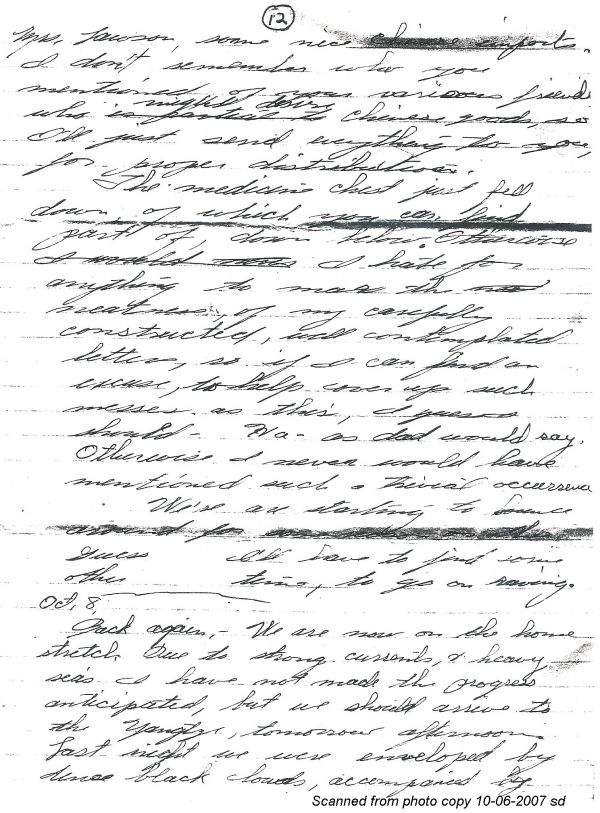 12
Mrs. Lawson, some nice Chinese imports.
I don't remember who you
mentioned of your various friends
who is partial to Chinese goods, so
might desire
I'll just send everything to you,
for proper distribution.
The medicine chest just fell
down, of which you can find
part of, down below. Otherwise
I would I hate for
anything to mar the
neatness, of my carefully
constructed, well contemplated
letters, so if I can find an
excuse, to help cover up such
messes as this, I guess
should - Ha - as dad would say.
Otherwise I never would have
mentioned such a trivial occurrence
We're are starting to bounce
around for
guess I'll have to find some
other time, to go on raving.
Oct, 8,
Back again,- We are now on the home
stretch. Due to strong currents, & heavy
seas I have not made the progress
anticipated, but we should arrive to
the Yangtze, tomorrow afternoon.
Last night we were enveloped by
dense black clouds, accompanied by
Scanned from photo copy 10-06-2007 sd